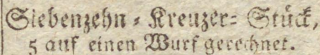 Siebenzehn-Kreuzer-Stück,
5 auf einen Wurf gerechnet.